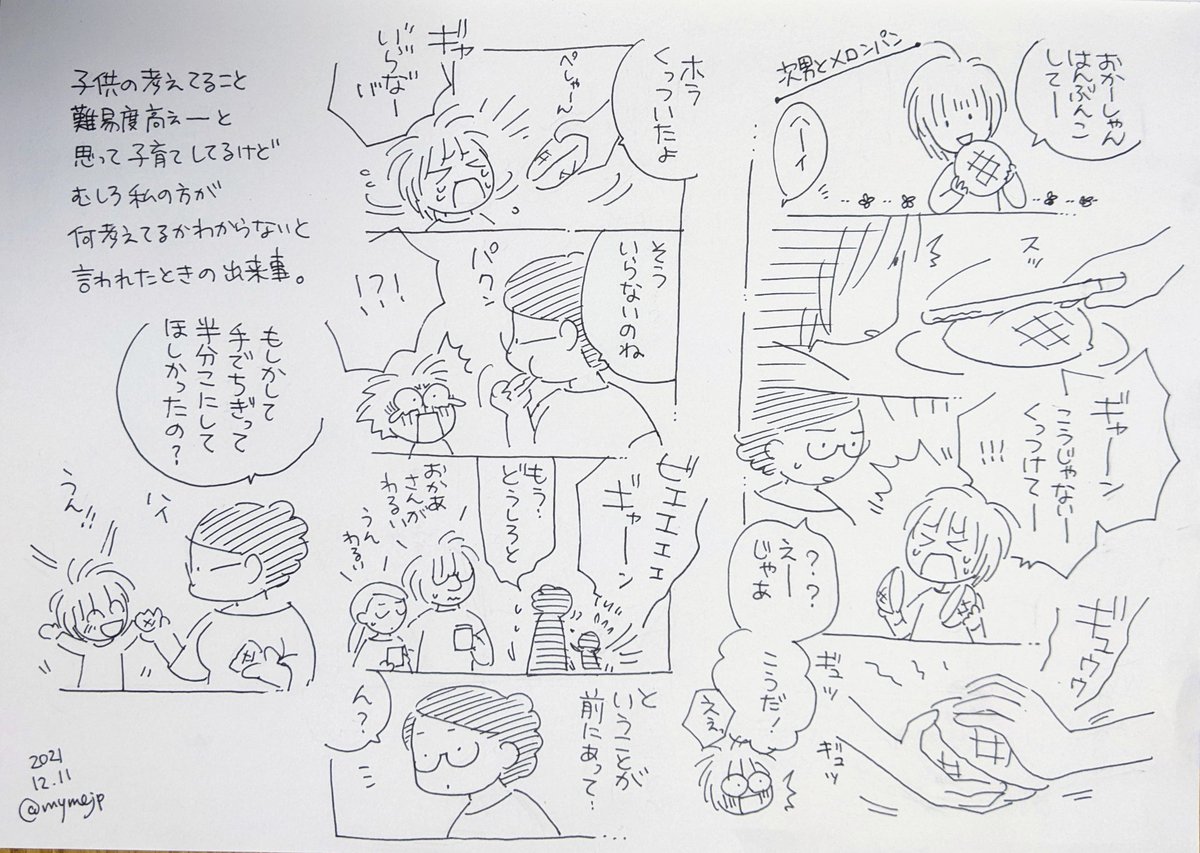 次男とメロンパン
おかーしゃん
はんぶんこ
してー
ヘーイ
スッ
ギャーン
こうじゃないー
くっつけてー
!!!
???
えー
じゃあ
ギュウゥ
ギュッ
ギュッ
こうだ!
ええ
ホラ
くっついたよ
ぺしゃーん
ギャ
いらなー
い゛
そう
いらないのね
パクン
!?!
ビエエエエエ
ギャーン
もう?
どうしろと
おかあ
さんが
わるい
うん
わるい
と
いうことが
前にあって?
ん?
もしかして
手でちぎって
半分こにして
ほしかったの?
ハイ
うん!!
子供の考えてること
難易度高えーと
思って子育てしてるけど
むしろ私の方が
何考えてるかわからないと
言われたときの出来事。
2021
12.11
@mymejp